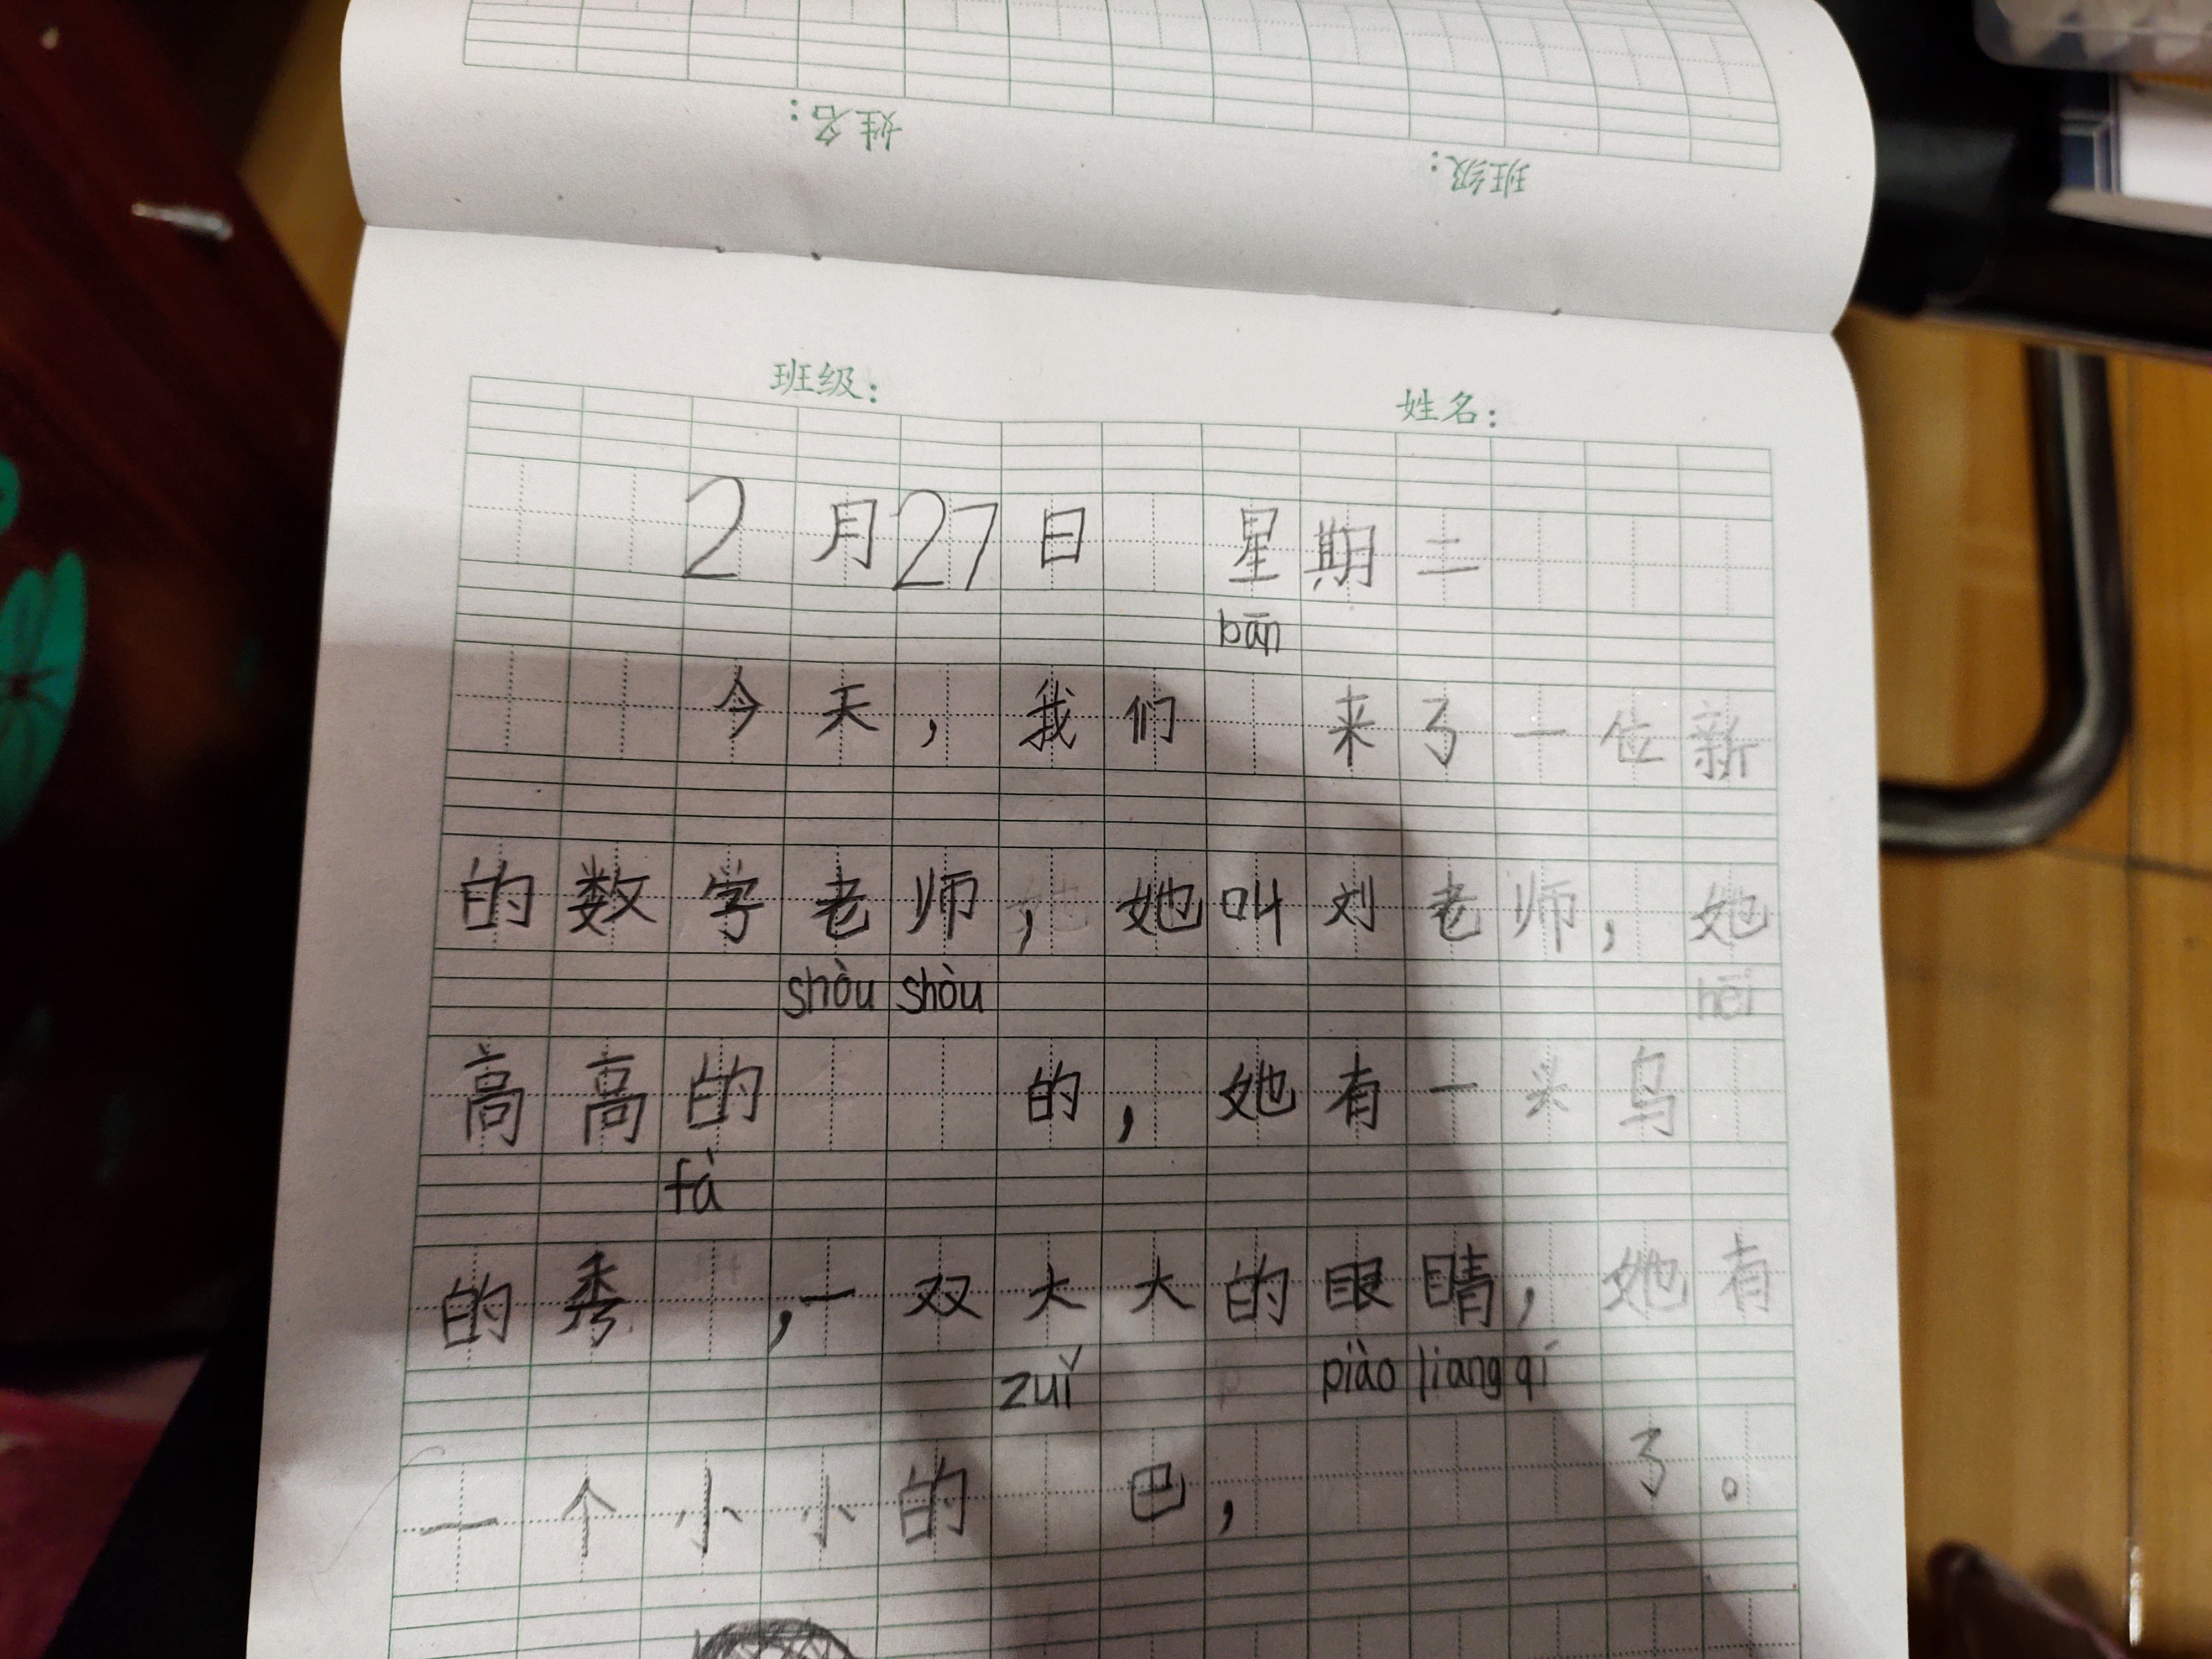 姓名：
班级：
班级： 姓名：
2月27日 星期二
bān
今天，我们 来了一位新
的数学老师，她叫刘老师，她
shòu shòu hēi
高高的 的，她有一头乌
fà
的秀 ，一双大大的眼睛，她有
zuǐ piào liang qí
一个小小的 巴， 了。